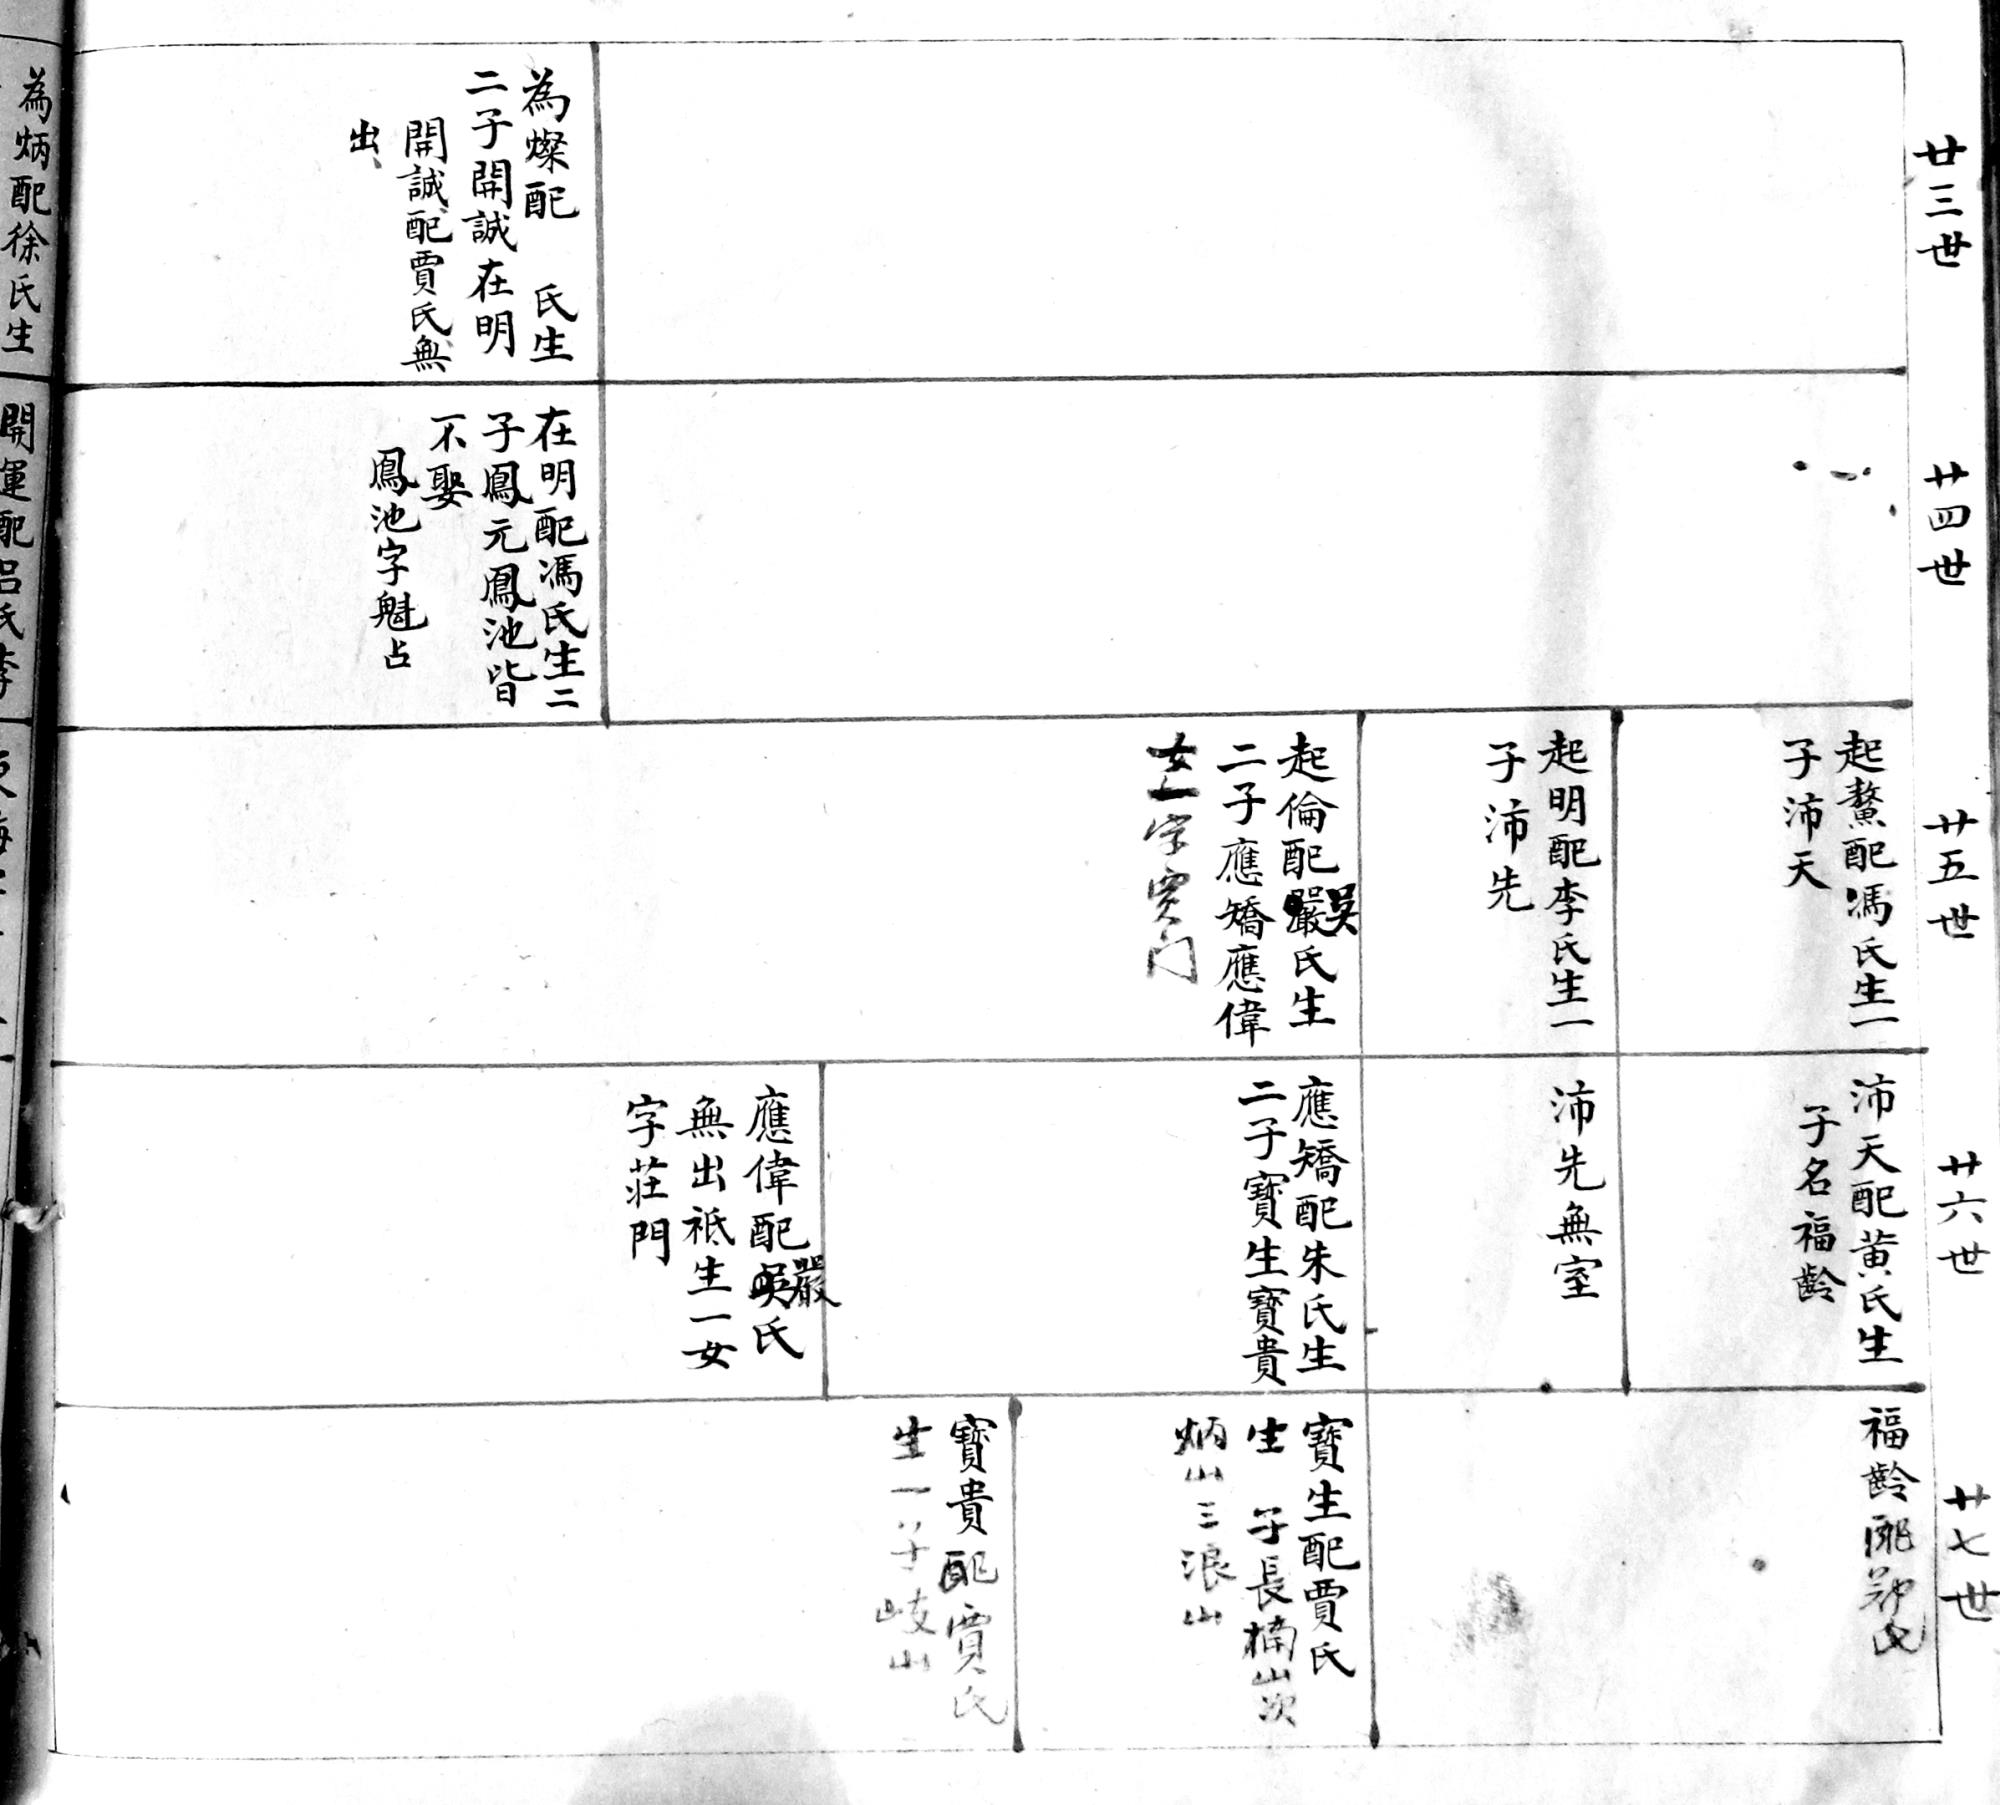 廿三世
為燦配　氏生
二子開誠在明
開誠配賈氏無
出
廿四世
在明配馮氏生二
子鳳元鳳池皆
不娶
鳳池字魁占
廿五世
起鰲配馮氏生一
子沛天
起明配李氏生一
子沛先
起倫配嚴吳氏生
二子應矯應偉
女一字賈门
廿六世
沛天配黃氏生
子名福齡
沛先無室
應矯配朱氏生
二子寶生寶貴
應偉配吳嚴氏
無出祗生一女
字莊門
廿七世
福齡配
寶生配賈氏
生　子長楠山次
炳山三浪山
寶貴配賈氏
生一子岐山
為炳配徐氏生
開運配呂氏李